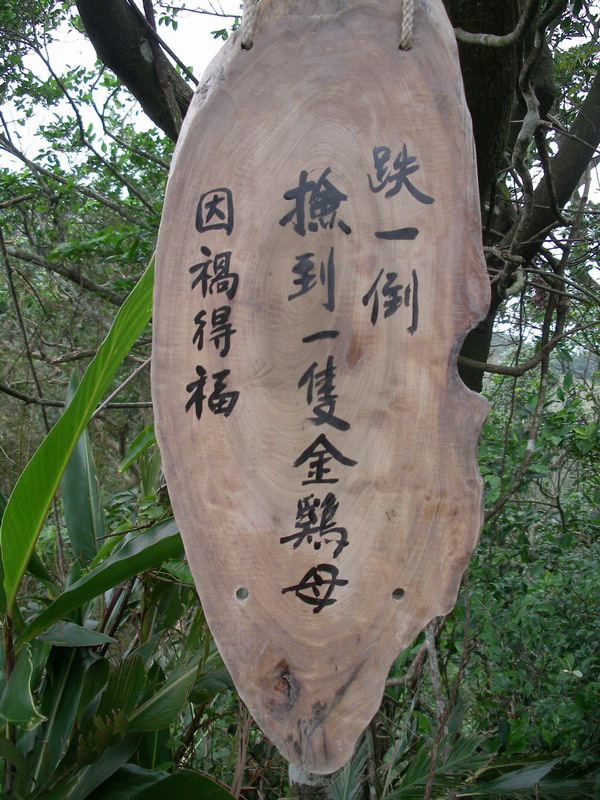 跌一倒
撿到一隻金鷄母
因禍得福